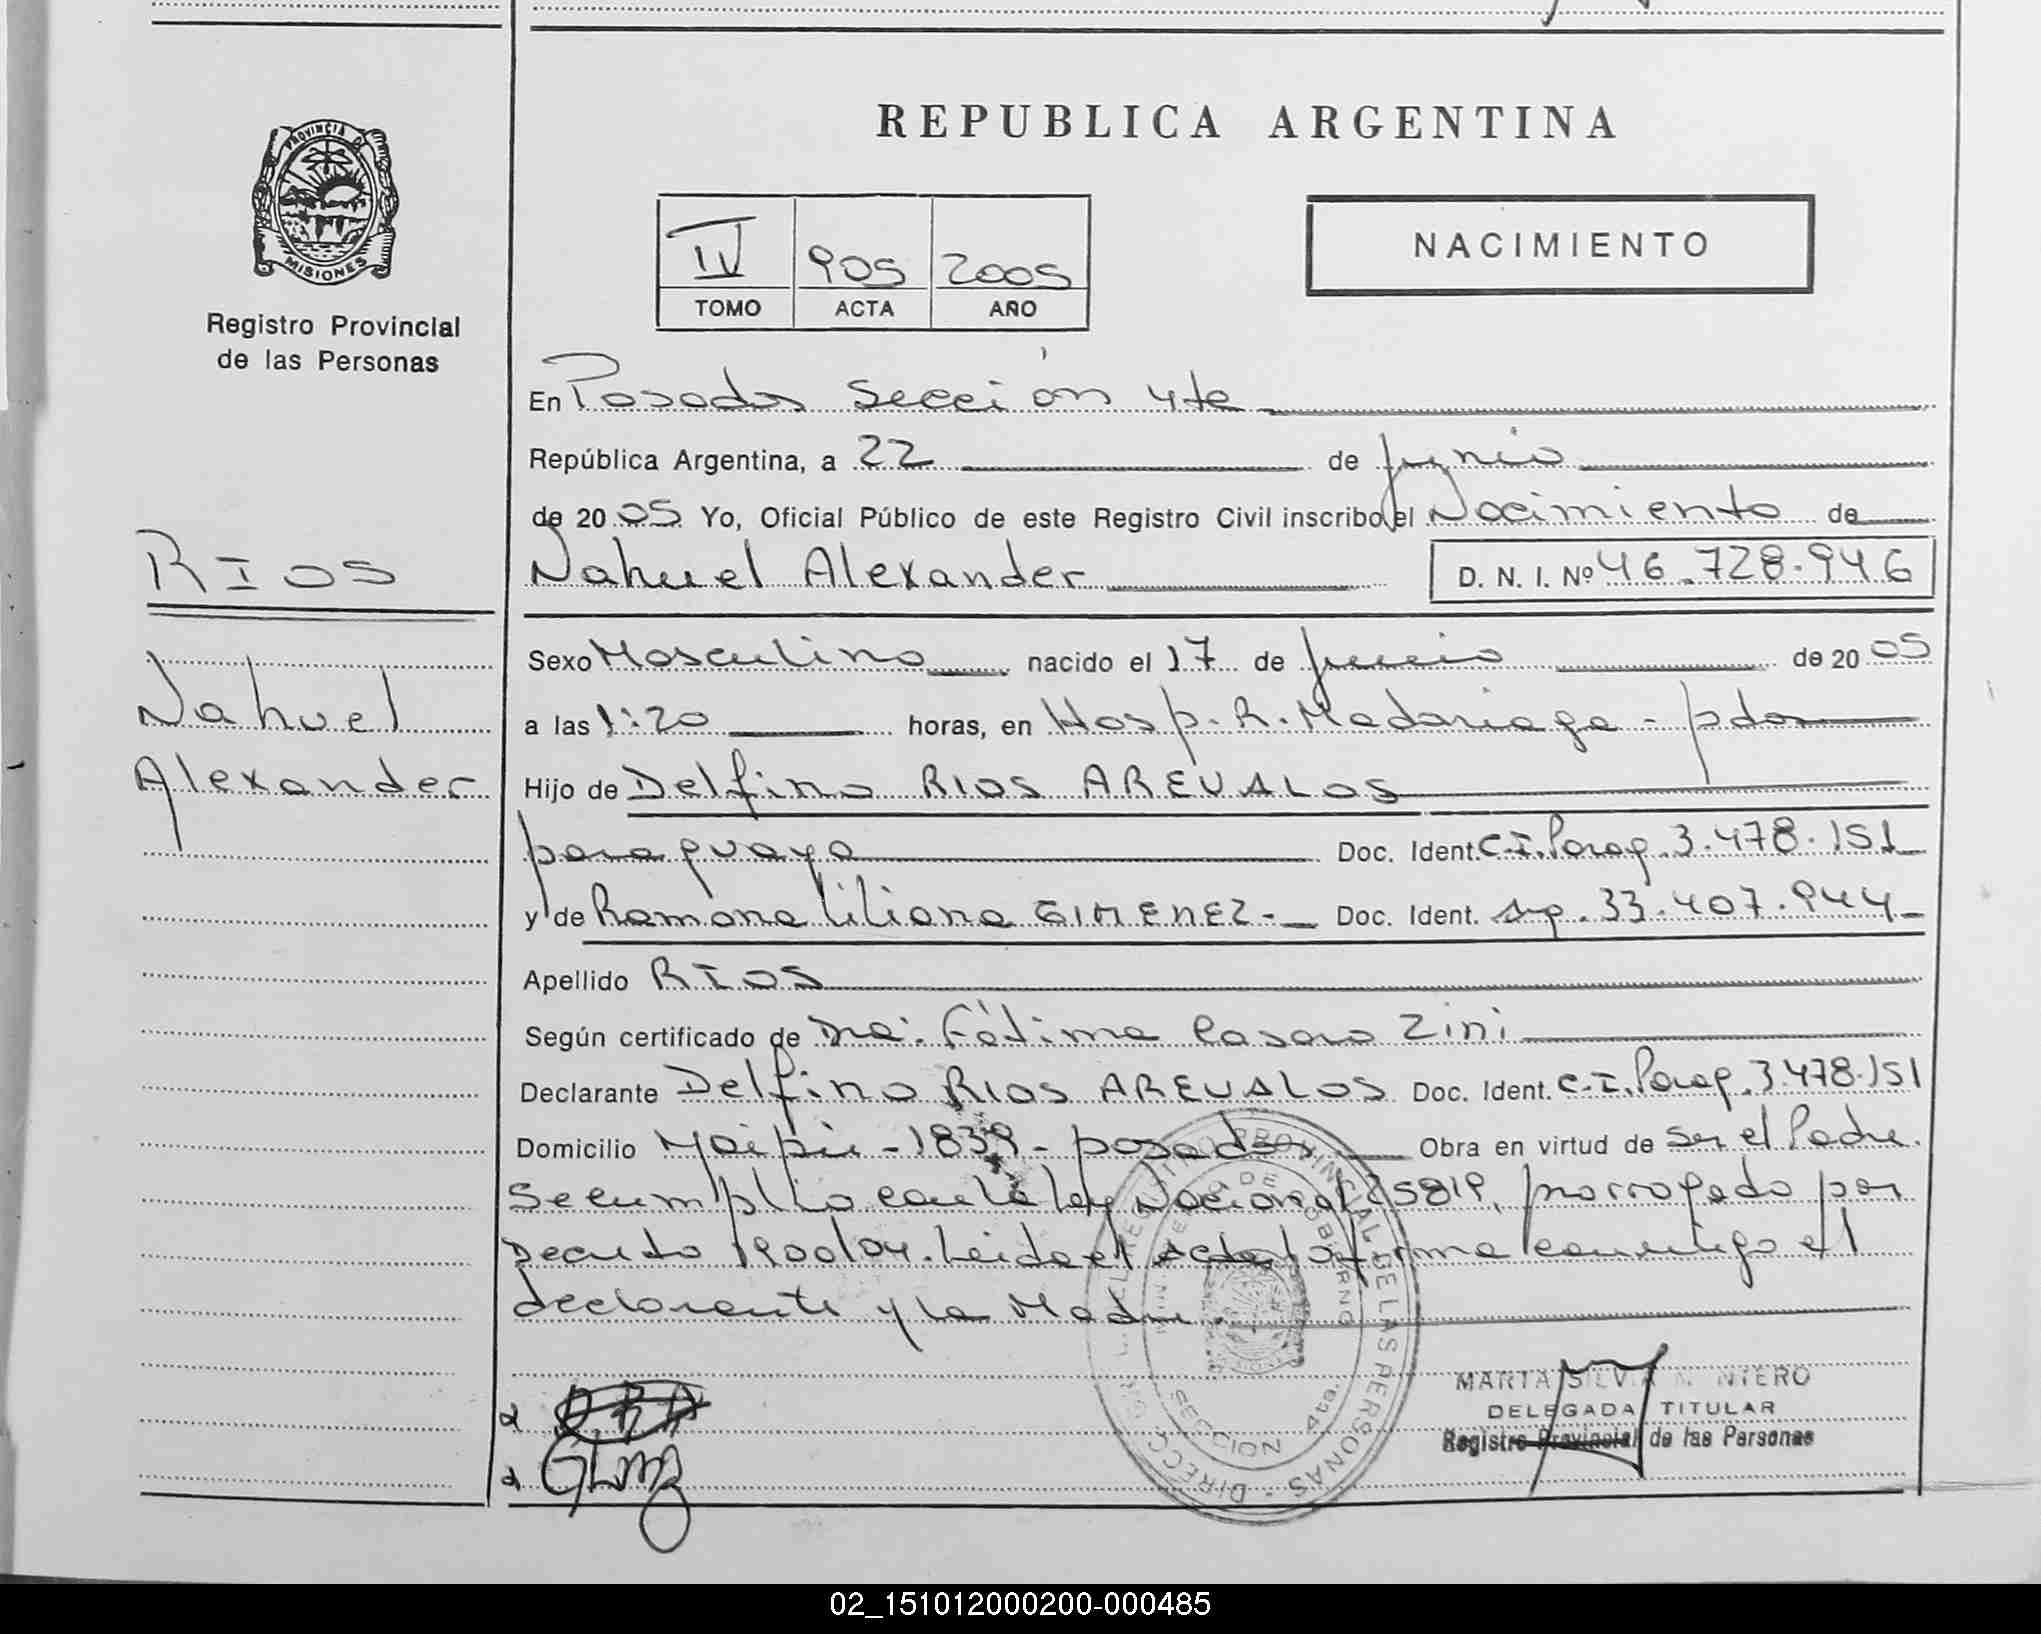 REPUBLICA ARGENTINA
PROVINCIA DE
MISIONES
Registro Provincial
de las Personas
IV 905 2005
TOMO ACTA AÑO
NACIMIENTO
En Posadas Sección 4ta
República Argentina, a 22 de junio
de 2005 Yo, Oficial Público de este Registro Civil inscribo el Nacimiento de
RIOS
Nahuel Alexander D. N. I. Nº 46.728.946
Sexo Masculino nacido el 17 de junio de 2005
Nahuel
a las 1:20 horas, en Hosp. R. Madariaga - pdas
Alexander
Hijo de Delfino RIOS AREVALOS
paraguaya Doc. Ident. C.I. Parag. 3.478.151
y de Ramona Liliana GIMENEZ.- Doc. Ident. 33.407.944-
Apellido RIOS
Según certificado de Dra. Fátima Casaro Zini
Declarante Delfino RIOS AREVALOS Doc. Ident. C.I. Parag. 3.478.151
Domicilio Maipú - 1839 - posadas Obra en virtud de ser el Padre.
Se cumplio con la ley Nacional 25819, prorrogado por
Decreto 1900/04. Leida el acta la firma conmigo el
declarante y la Madre.
DIRECC REGISTRO PROVINCIAL DE LAS PERSONAS
DE GOBIERNO
SECCION 4ta.
MARTA SILVIA M NTERO
DELEGADA TITULAR
Registro Provincial de las Personas
02_151012000200-000485